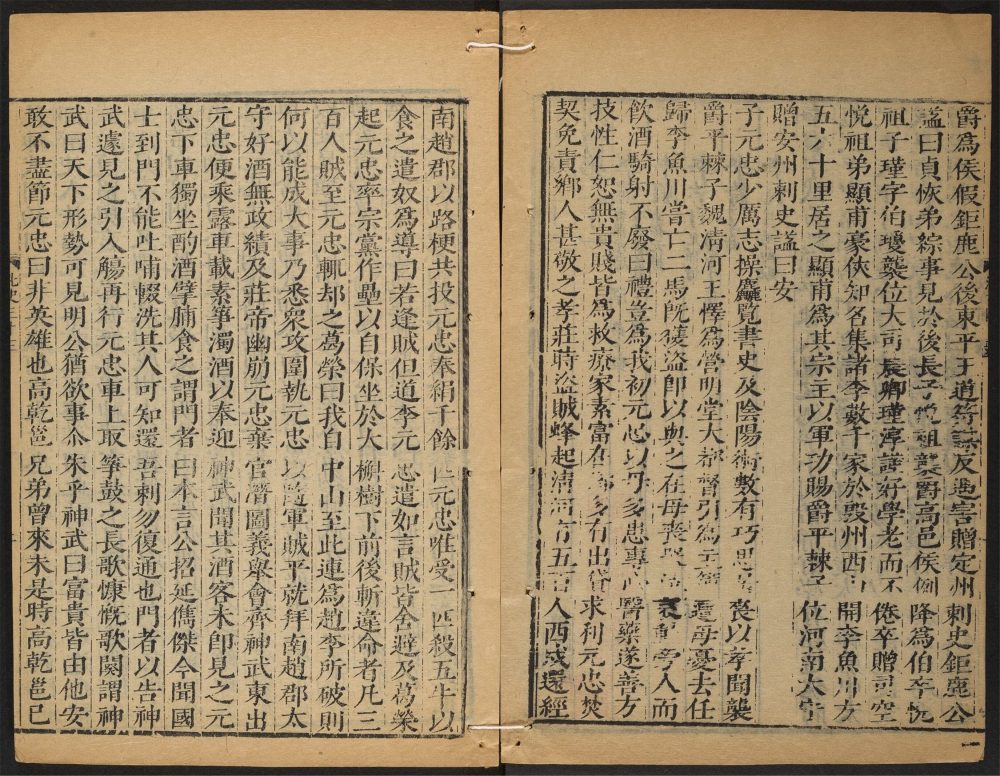 爵為侯假鉅鹿公後東平王道符謀反遇害贈定州刺史鉅鹿公
諡曰貞恢弟綜事見於後長子悅祖襲爵高邑侯例降為伯卒悅
祖子瑾字伯瓊襲位大司農卿瑾淳謹好學老而不倦卒贈司空
悅祖弟顯甫豪俠知名集諸李數千家於毀州西山開李魚川方
五六十里居之顯甫為其宗主以軍功賜爵平棘子位河南太守
贈安州刺史諡曰安
子元忠少厲志操麤覽書史及陰陽術數有巧思居喪以孝聞襲
爵平棘子魏清河王懌為營明堂大都督引為主簿遭母憂去任
歸李魚川嘗亡二馬既獲盜即以與之在母喪哭哀動旁人而
飲酒騎射不廢曰禮豈為我初元忠以母多患專心醫藥遂善方
技性仁恕無貴賤皆為救療家素富在多有出貸求利元忠焚
契免責鄉人甚敬之孝莊時盜賊蜂起清河有五百人西戍還經
南趙郡以路梗共投元忠奉絹千餘匹元忠唯受一匹殺五牛以
食之遣奴為導曰若逢賊但道李元忠遣如言賊皆舍避及葛榮
起元忠率宗黨作壘以自保坐於大槲樹下前後斬違命者凡三
百人賊至元忠輒却之葛榮曰我自中山至此連為趙李所破則
何以能成大事乃悉眾攻圍執元忠以隨軍賊平就拜南趙郡太
守好酒無政績及莊帝幽崩元忠棄官潛圖義舉會齊神武東出
元忠便乘露車載素箏濁酒以奉迎神武聞其酒客未即見之元
忠下車獨坐酌酒擘脯食之謂門者曰本言公招延儁傑今聞國
士到門不能吐哺輟洗其人可知還吾刺勿復通也門者以告神
武遽見之引入觴再行元忠車上取箏鼓之長歌慷慨歌闋謂神
武曰天下形勢可見明公猶欲事尒朱乎神武曰富貴皆由他安
敢不盡節元忠曰非英雄也高乾邕兄弟曾來未是時高乾邕已